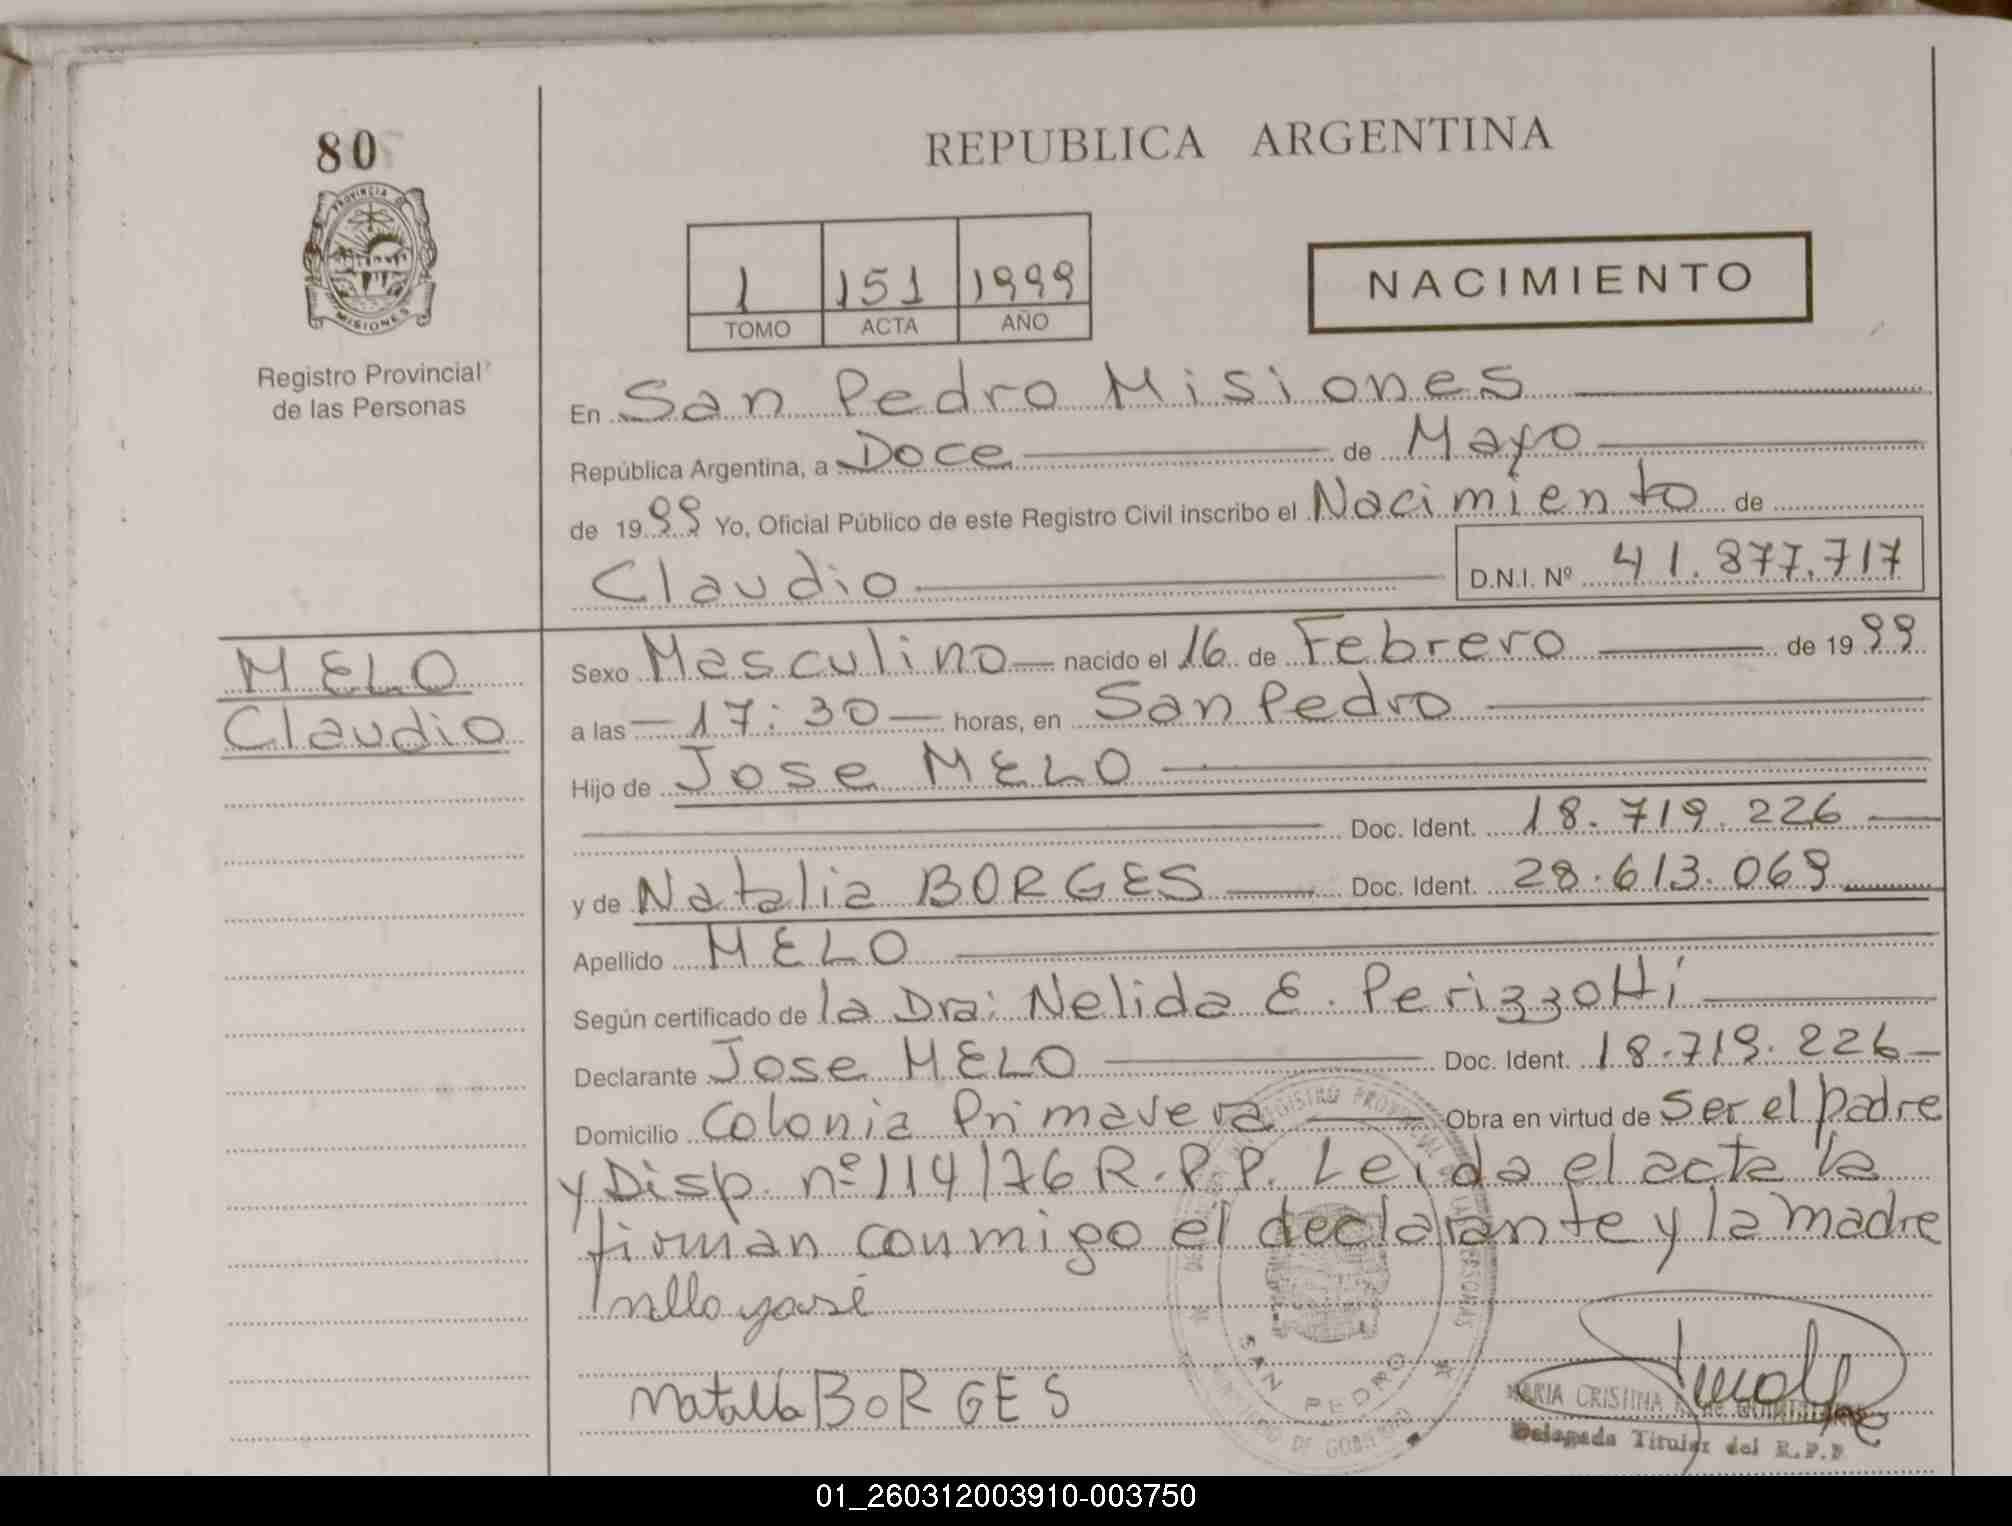 80
PROVINCIA D
MISIONES
Registro Provincial
de las Personas
REPUBLICA ARGENTINA
1 151 1999
TOMO ACTA AÑO
NACIMIENTO
En San Pedro Misiones
República Argentina, a Doce de Mayo
de 1999 Yo, Oficial Público de este Registro Civil inscribo el Nacimiento de
Claudio D.N.I. Nº 41.877.717
MELO
Claudio
Sexo Masculino nacido el 16 de Febrero de 1999
a las 17:30 horas, en San Pedro
Hijo de Jose MELO
Doc. Ident. 18.719.226
y de Natalia BORGES Doc. Ident. 28.613.069
Apellido MELO
Según certificado de la Dra: Nelida E. Perizzotti
Declarante Jose MELO Doc. Ident. 18.719.226
Domicilio Colonia Primavera Obra en virtud de Ser el padre
y Disp. nº 114/76 R.P.P. Leida el acta la
firman conmigo el declarante y la madre
Natalia BORGES
SAN PEDRO
MARIA CRISTINA
Delegada Titular del R.P.P
01_260312003910-003750